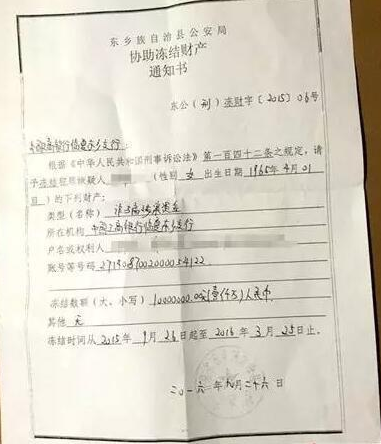 东乡族自治县公安局
协助冻结财产
通知书
东公（刑）冻财字〔2015〕06号
中国工商银行临夏东乡支行：
根据《中华人民共和国刑事诉讼法》第一百四十二条之规定，请
予冻结犯罪嫌疑人（性别 女 出生日期 1965年4月01
日）的下列财产：
类型（名称）
所在机构 中国工商银行临夏东乡支行
户名或权利人
账号等号码
冻结数额（大、小写）10000000.00元（壹仟万）人民币
其他 无
冻结时间从2015年9月26日起至2016年3月25日止。
二〇一六年九月二十六日